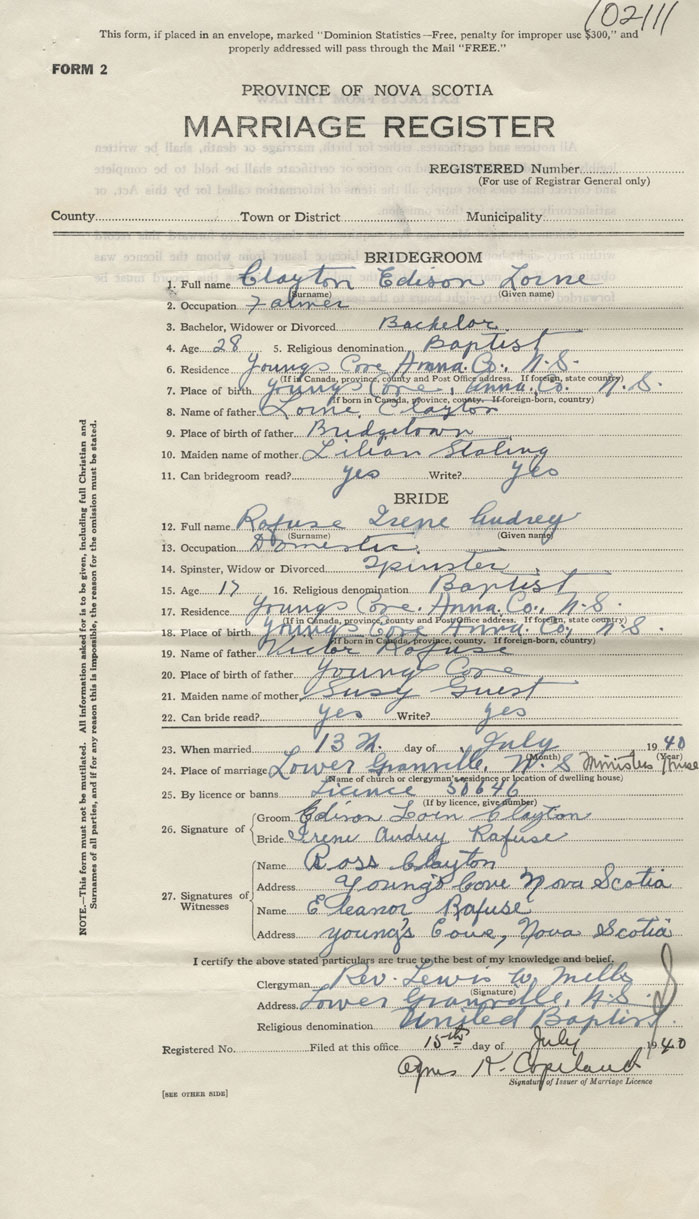 102111
This form, if placed in an envelope, marked "Dominion Statistics—Free, penalty for improper use $300," and
properly addressed will pass through the Mail "FREE."
FORM 2
PROVINCE OF NOVA SCOTIA
MARRIAGE REGISTER
REGISTERED Number
(For use of Registrar General only)
County Town or District Municipality
BRIDEGROOM
1. Full name Clayton Edison Lorne
(Surname) (Given name)
2. Occupation Farmer
3. Bachelor, Widower or Divorced Bachelor
4. Age 28 5. Religious denomination Baptist
6. Residence Youngs Cove Anna. Co., N.S.
(If in Canada, province, county and Post Office address. If foreign, state country)
7. Place of birth Youngs Cove, Anna. Co. N.S.
(If born in Canada, province, county. If foreign-born, country)
8. Name of father Lorne, Clayton
9. Place of birth of father Bridgetown
10. Maiden name of mother Lilian Staling
11. Can bridegroom read? yes Write? yes
BRIDE
12. Full name Rafuse Irene Audrey
(Surname) (Given name)
13. Occupation Domestic
14. Spinster, Widow or Divorced Spinster
15. Age 17 16. Religious denomination Baptist
17. Residence Youngs Cove. Anna. Co., N.S.
(If in Canada, province, county and Post Office address. If foreign, state country)
18. Place of birth Youngs Cove Anna. Co, N.S.
(If born in Canada, province, county. If foreign-born, country)
19. Name of father Victor Rafuse
20. Place of birth of father Youngs Cove
21. Maiden name of mother Susy Guest
22. Can bride read? yes Write? yes
23. When married 13th. day of July 1940
(Month) (Year)
24. Place of marriage Lower Granville, N.S Ministers House
(Name of church or clergyman's residence or location of dwelling house)
25. By licence or banns Licence 30646
(If by licence, give number)
26. Signature of Groom Edison Lorn Clayton
Bride Irene Audrey Rafuse
27. Signatures of Witnesses Name Ross Clayton
Address Young's Cove Nova Scotia
Name Eleanor Rafuse
Address young's Cove, Nova Scotia
I certify the above stated particulars are true to the best of my knowledge and belief.
Clergyman Rev. Lewis W. Mills
(Signature)
Address Lower Granville, N.S
Religious denomination United Baptist
Registered No. Filed at this office 15th day of July 1940
Agnes K. Copeland
Signature of Issuer of Marriage Licence
[SEE OTHER SIDE]
NOTE.—This form must not be mutilated. All information asked for is to be given, including full Christian and
Surnames of all parties, and if for any reason this is impossible, the reason for the omission must be stated.